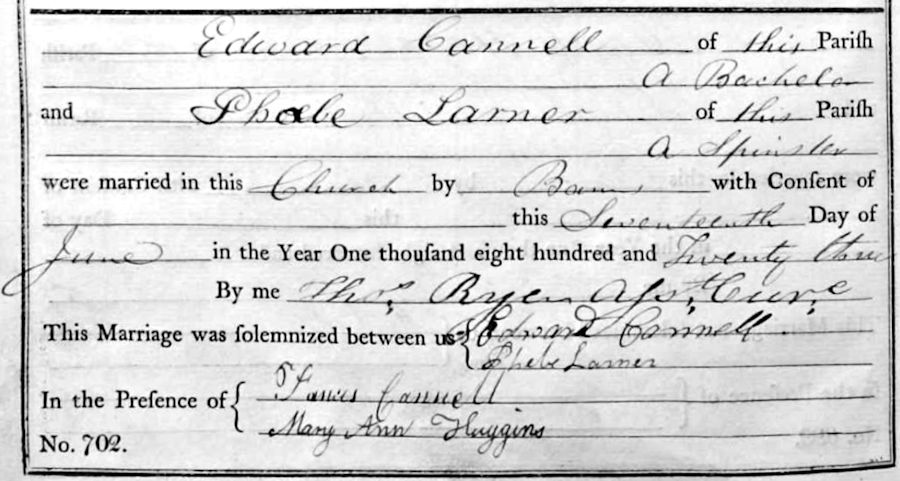 Edward Cannell of this Pariſh
A Bachelor
and Phœbe Larner of this Pariſh
A Spinster
were married in this Church by Banns with Conſent of
this Seventeenth Day of
June in the Year One thouſand eight hundred and Twenty three
By me Thos. Ryen Asst. Cure
This Marriage was ſolemnized between us Edward Cannell
Larner
In the Preſence of Cannell
Mary Ann Huggins
No. 702.